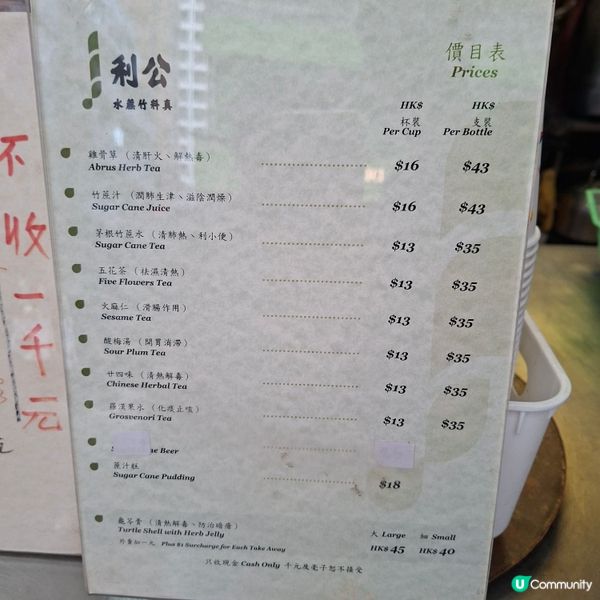 利公
水蔗竹料真
價目表
Prices
HK$ HK$
杯裝 支裝
Per Cup Per Bottle
雞骨草（清肝火、解熱毒）
Abrus Herb Tea $16 $43
竹蔗汁（潤肺生津、滋陰潤燥）
Sugar Cane Juice $16 $43
茅根竹蔗水（清肺熱、利小便）
Sugar Cane Tea $13 $35
五花茶（祛濕清熱）
Five Flowers Tea $13 $35
火麻仁（滑腸作用）
Sesame Tea $13 $35
酸梅湯（開胃消滯）
Sour Plum Tea $13 $35
廿四味（清熱解毒）
Chinese Herbal Tea $13 $35
羅漢果水（化痰止咳）
Grosvenori Tea $13 $35
Beer
蔗汁糕
Sugar Cane Pudding $18
龜苓膏（清熱解毒、防治暗瘡） 大 Large 細 Small
Turtle Shell with Herb Jelly HK$ 45 HK$ 40
外賣加一元 Plus $1 Surcharge for Each Take Away
只收現金 Cash Only 千元及毫子恕不接受
不收一千元
U Community